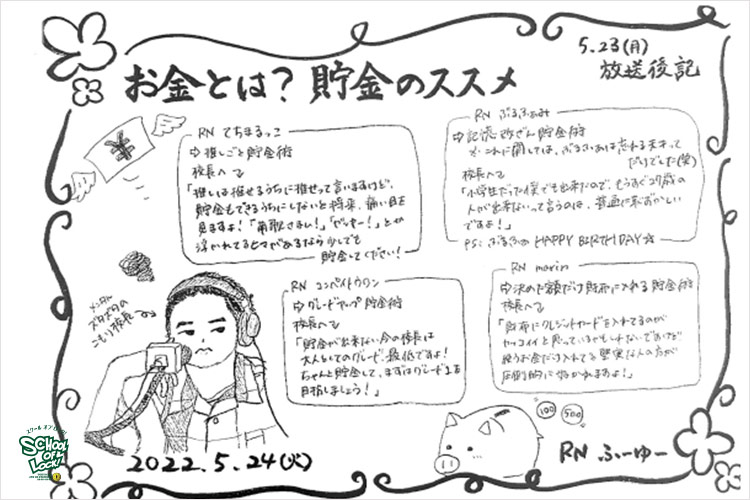 5.23(月)
放送後記
お金とは？貯金のススメ
RN てちまるっこ
⇨推しごと貯金術
校長へ
「推しは推せるうちに推せって言いますけど、
貯金もできるうちにしないと将来、痛い目を
見ますよ！
浮かれてるヒマがあるなら少しでも
貯金してください！
RN ぷるふぁみ
⇨記憶改ざん貯金術
これに関しては、ぷるふぁみは忘れる天才って
だけでした(笑)
校長へ
「小学生だった僕でも出来たので、もうすぐ29歳の
人が出来ないって言うのは、普通に恥ずかしい
ですよ！」
PS: ぷるふぁみ HAPPY BIRTHDAY☆
RN コンペイトウワン
⇨グレードアップ貯金術
校長へ
「貯金が出来ない今の校長は
大人としてのグレード最低ですよ！
ちゃんと貯金して、まずはグレード1を
目指しましょう！」
RN marin
⇨決めた額だけ財布に入れる貯金術
校長へ
「財布にクレジットカードを入れてるのが
カッコイイと思っているかもしれないですけど
使うお金だけ入れてる堅実な人の方が
圧倒的に好かれますよ！」
メンタル
ズタズタの
こもり校長
¥
100
500
スクール オブ ロック！
SCHOOL
OF
LOCK!
2022.5.24(火)
RN ふーゆー